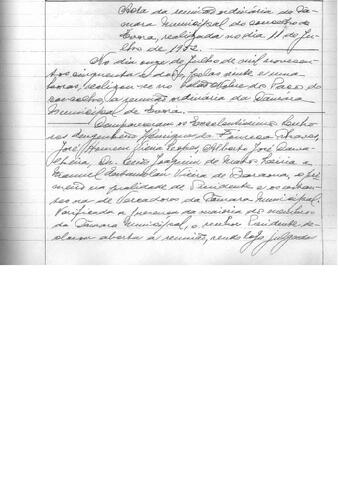 Acta da reunião ordinária da Câ-
mara Municipal do concelho de
Évora, realizada no dia 11 de Ju-
lho de 1952.
No dia onze de Julho de mil novecen-
tos cinquenta e dois, pelas vinte e uma
horas, realizou-se no Salão Nobre do Paço do
concelho, a reunião ordinária da Câmara
Municipal de Évora.
Compareceram os Excelentíssimos Senho-
res Engenheiro Henrique da Fonseca Chaves,
José Alberto José
Dr. Joaquim de Matos
Manuel Vieira de o pri-
meiro na qualidade de Presidente e os outros
na de Vereadores da Câmara Municipal.
Verificada a presença da maioria dos membros
da Câmara Municipal, o senhor Presidente de-
clarou aberta a reunião, sendo logo